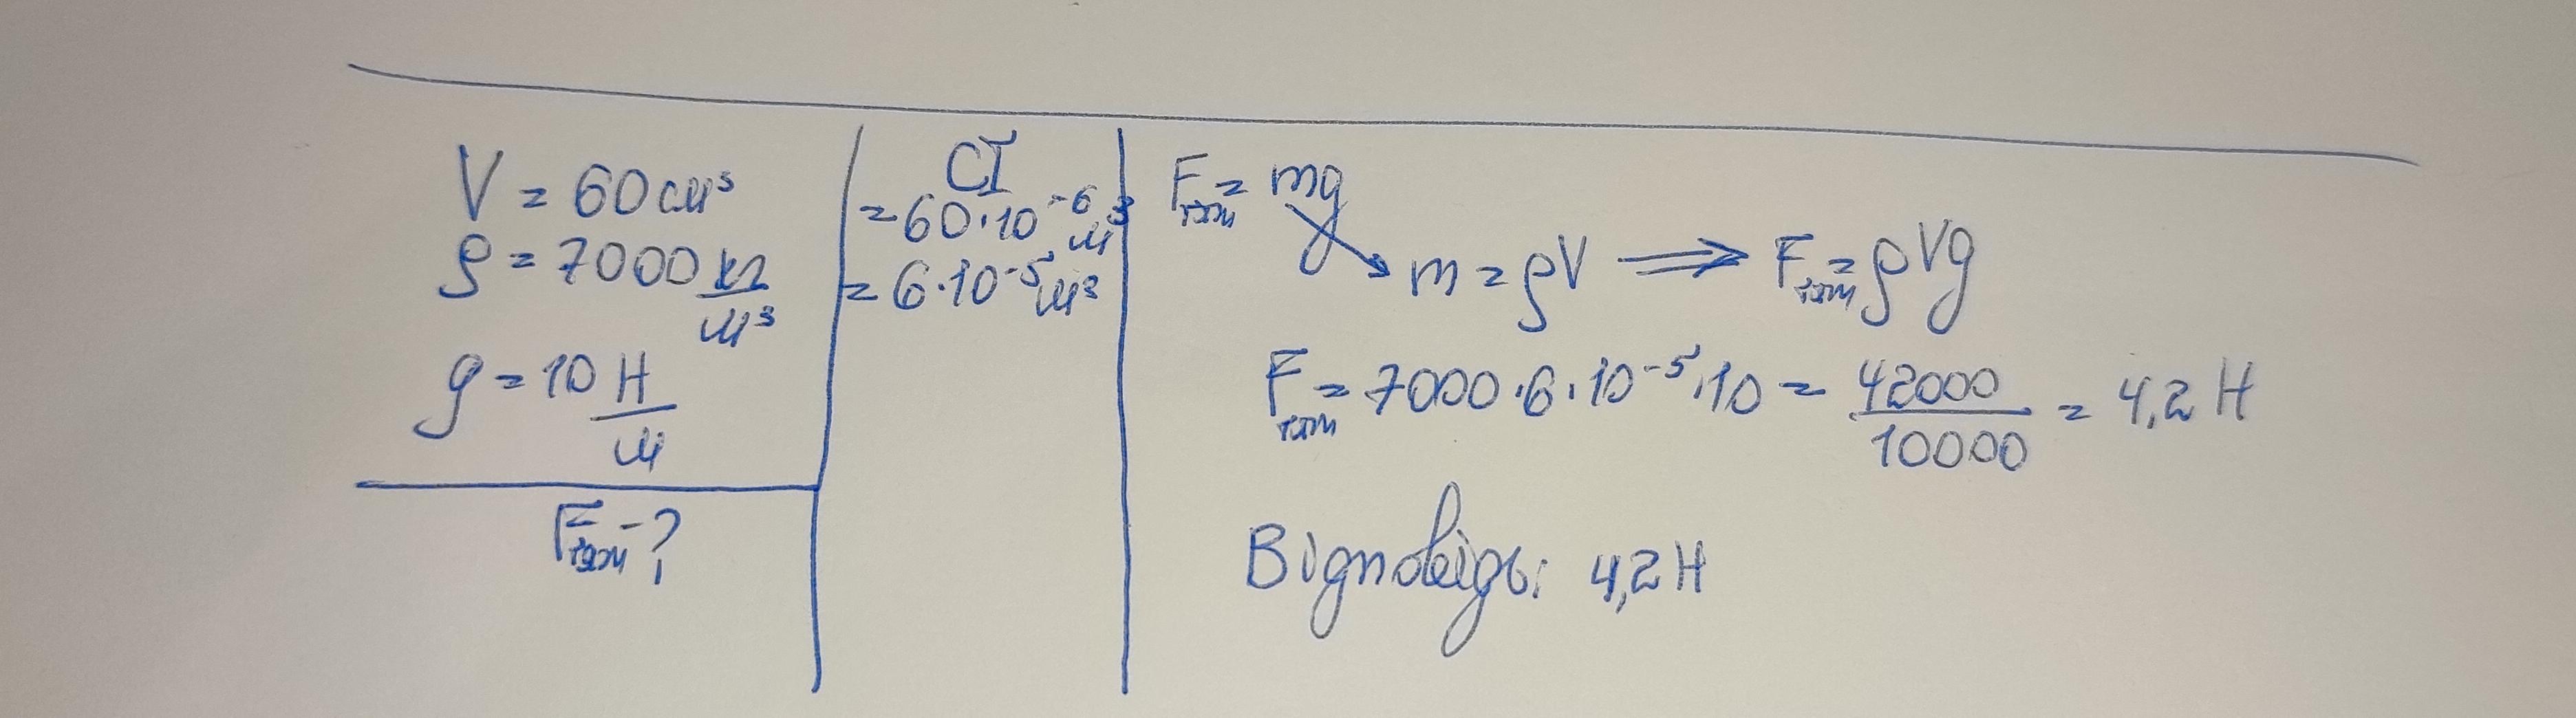 V = 60 см³
ρ = 7000 кг/м³
g = 10 Н/м
Fтяж - ?
СІ
= 60·10⁻⁶ м³
= 6·10⁻⁵ м³
Fтяж = mg
m = ρV ⟹ Fтяж = ρVg
Fтяж = 7000·6·10⁻⁵·10 = 42000/10000 = 4,2 Н
Відповідь: 4,2 Н